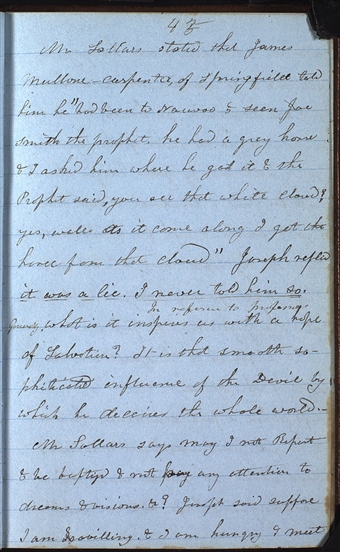 43
Mr Sollars stated that James
Mullone carpenter, of Springfield told
him he "had been to Nauvoo & seen Joe
Smith the prophet. he had a grey horse
& I asked him where he got it & the
Prophet said, you see that white cloud?
yes, well as it come along I got the
horse from that cloud" Joseph replied
it was a lie. I never told him so.
In reference to
Generally, what is it inspires us with a hope
of Salvation? It is that smooth so-
phisticated influence of the Devil by
which he deceives the whole world.-
Mr Sollars says may I not Repent
& be baptized & not pay any attention to
dreams & visions &c? Joseph said suppose
I am travelling & I am hungry & meet